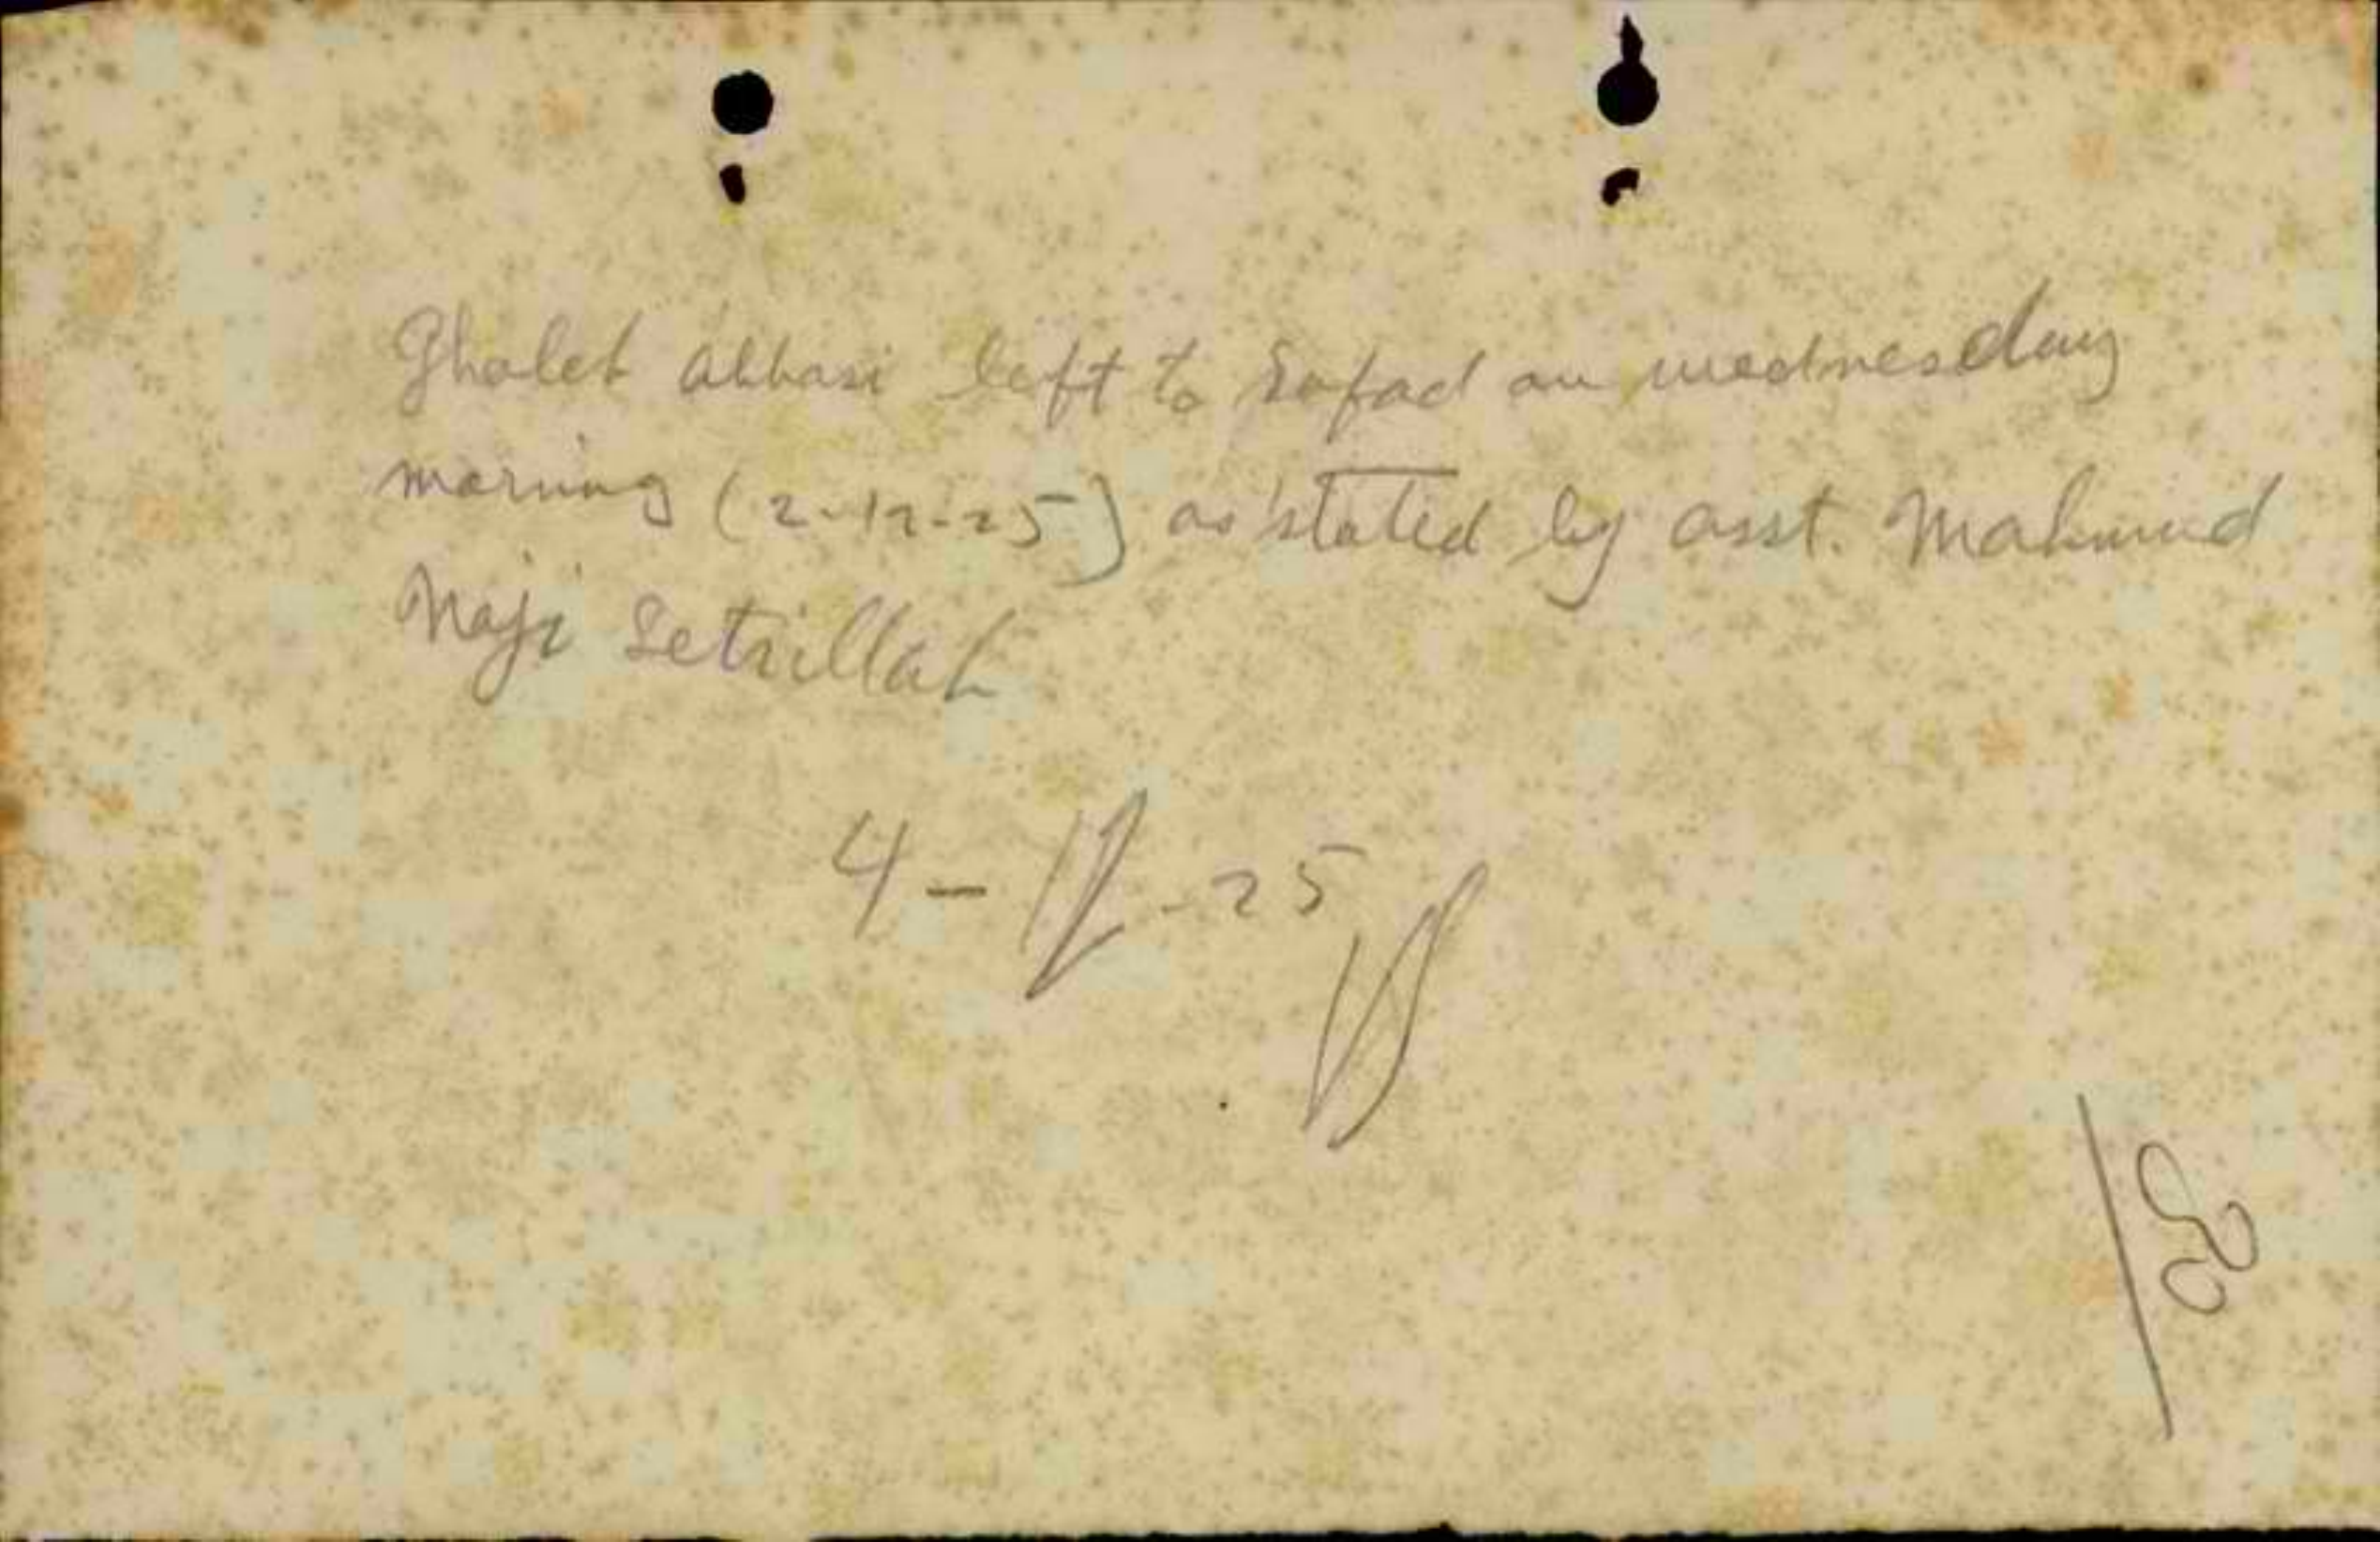 Ghaleb Abbasi left to Safad on wednesday
morning (2-12-25) as stated by asst. Mahmud
Naji Setrillah
4-12-25